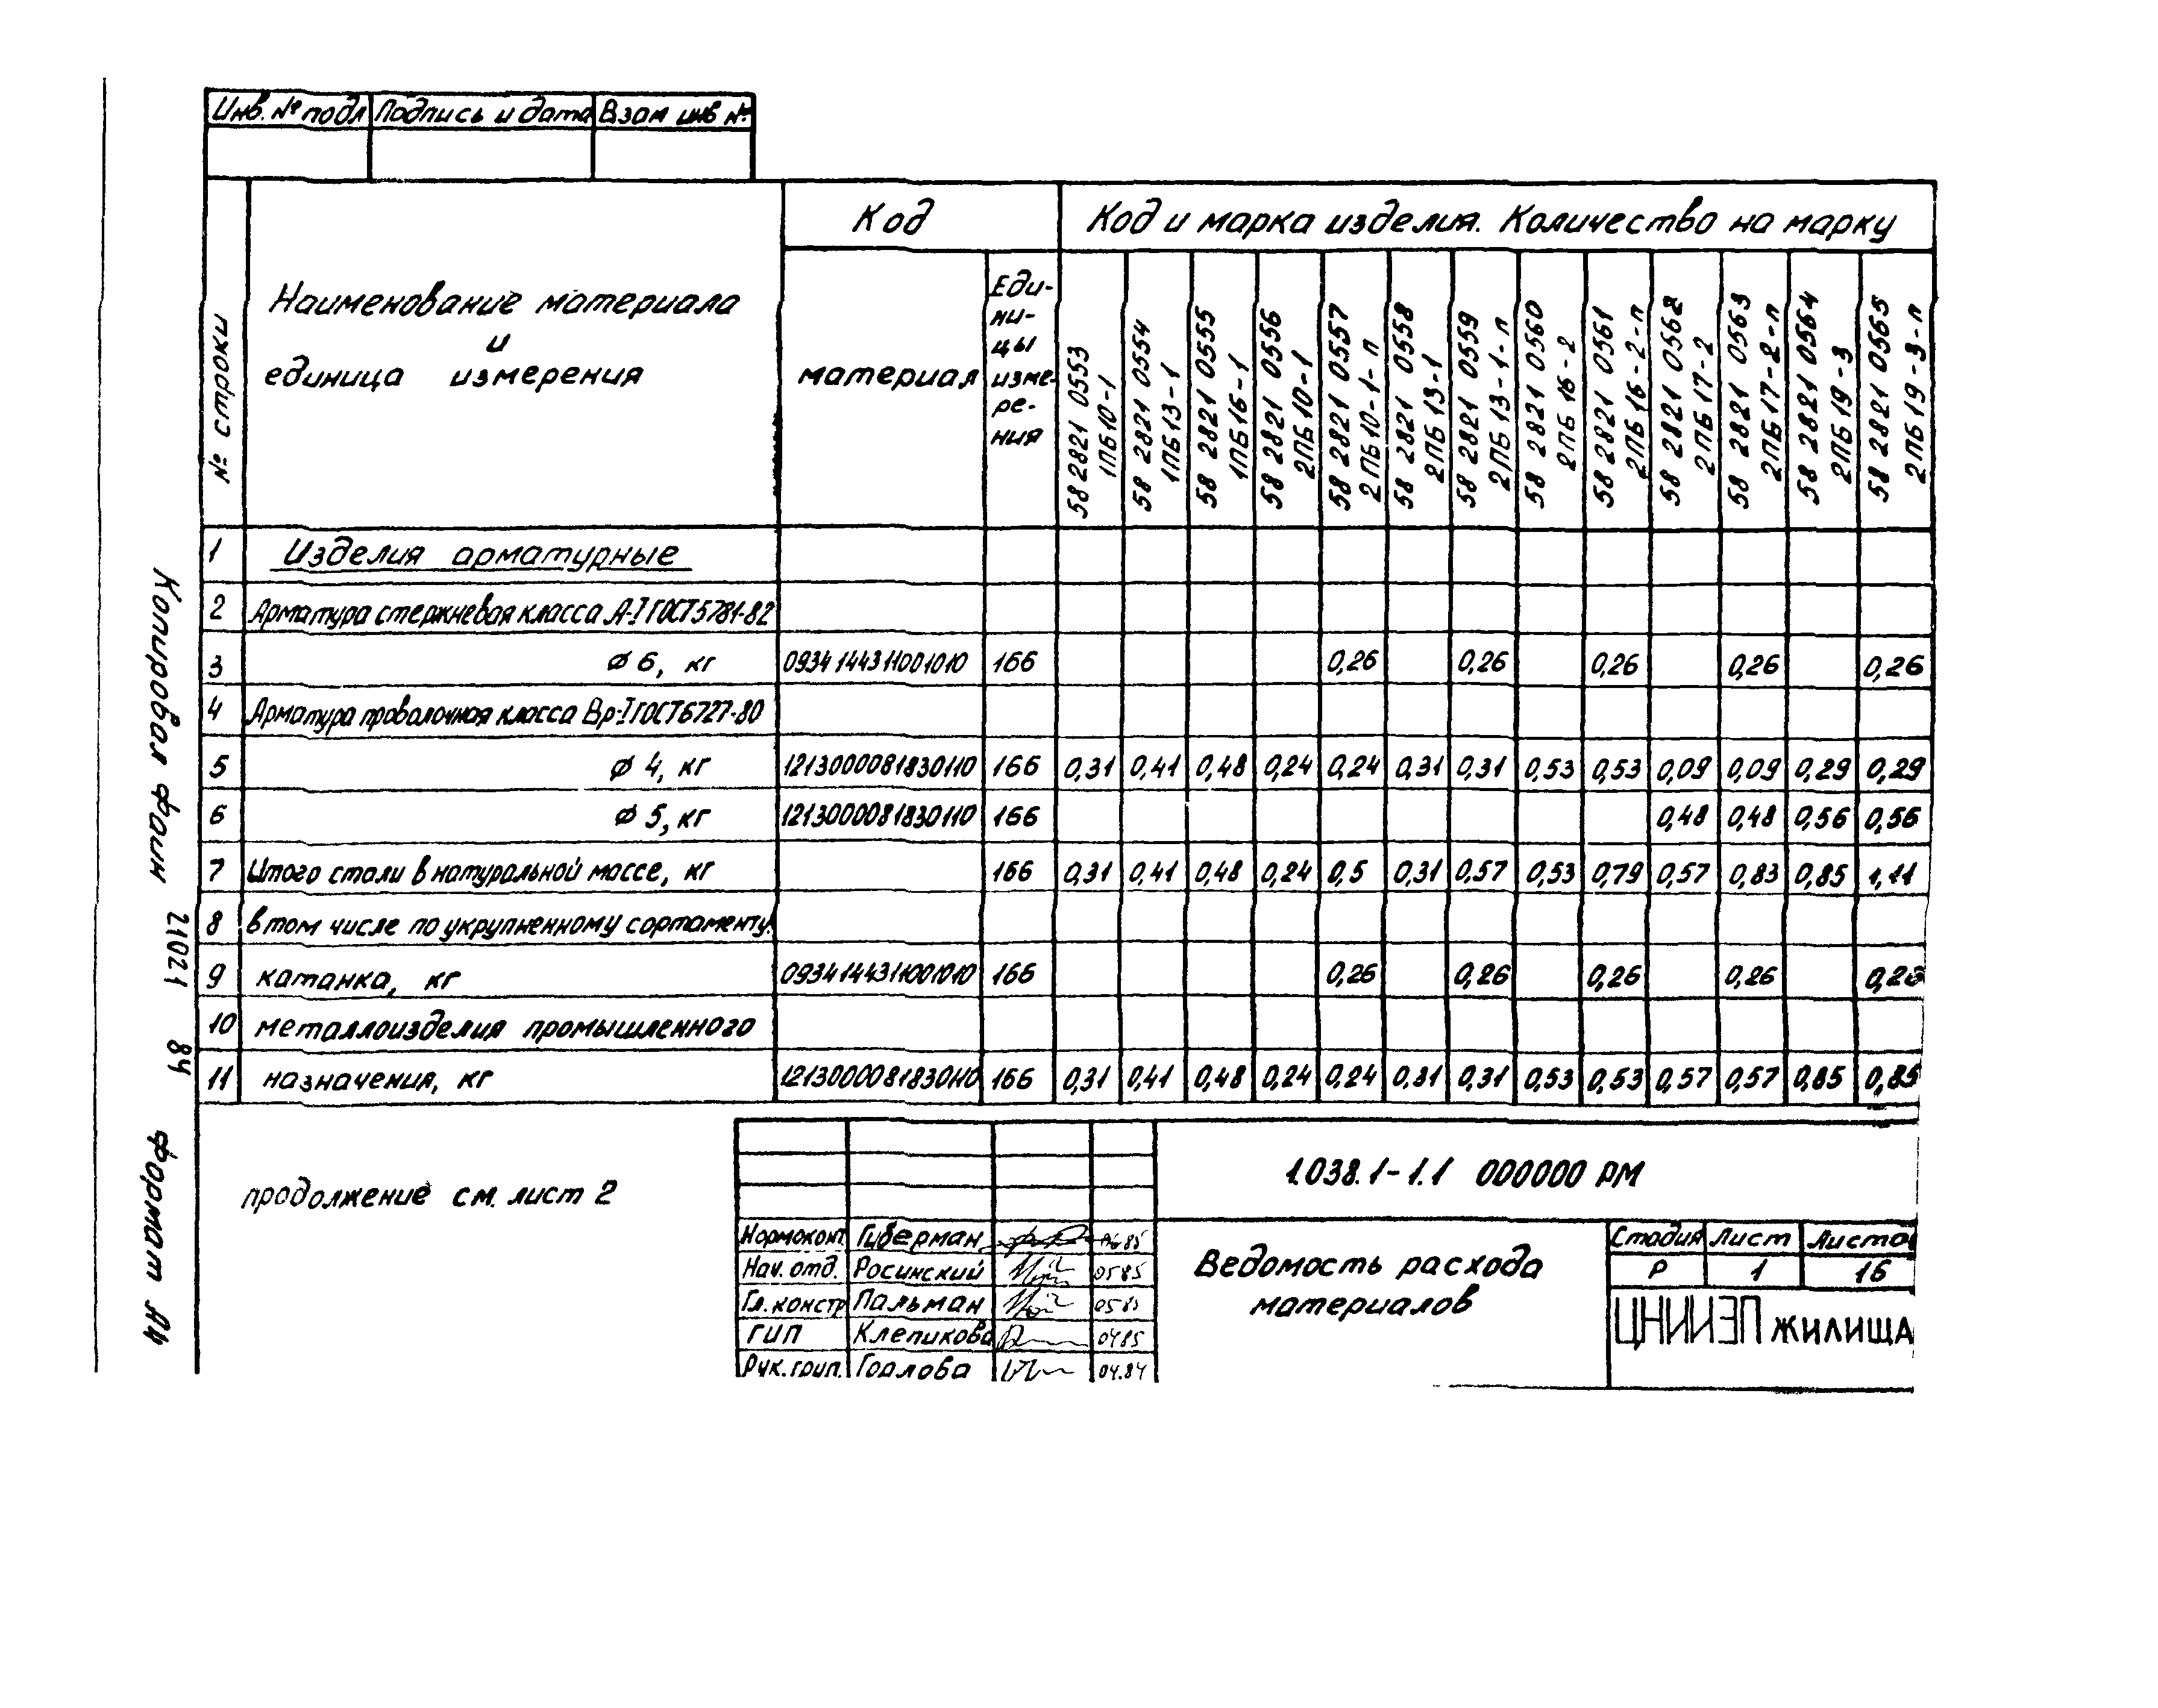 Инв. № подл Подпись и дата Взам инв №
№ строки
Наименование материала
и
единица измерения
Код
Код и марка изделия. Количество на марку
материал
Еди-
ни-
цы
изме-
ре-
ния
58 2821 0553
1ПБ10-1
58 2821 0554
1ПБ13-1
58 2821 0555
1ПБ16-1
58 2821 0556
2ПБ10-1
58 2821 0557
2ПБ10-1-п
58 2821 0558
2ПБ13-1
58 2821 0559
2ПБ13-1-п
58 2821 0560
2ПБ16-2
58 2821 0561
2ПБ16-2-п
58 2821 0562
2ПБ17-2
58 2821 0563
2ПБ17-2-п
58 2821 0564
2ПБ19-3
58 2821 0565
2ПБ19-3-п
1 Изделия арматурные
2 Арматура стержневая класса А-I ГОСТ 5781-82
3 ø 6, кг 0934144311001010 166 0,26 0,26 0,26 0,26 0,26
4 Арматура проволочная класса Вр-I ГОСТ 6727-80
5 ø 4, кг 1213000081830110 166 0,31 0,41 0,48 0,24 0,24 0,31 0,31 0,53 0,53 0,09 0,09 0,29 0,29
6 ø 5, кг 1213000081830110 166 0,48 0,48 0,56 0,56
7 Итого стали в натуральной массе, кг 166 0,31 0,41 0,48 0,24 0,5 0,31 0,57 0,53 0,79 0,57 0,83 0,85 1,11
8 в том числе по укрупненному сортаменту:
9 катанка, кг 0934144311001010 166 0,26 0,26 0,26 0,26 0,26
10 металлоизделия промышленного
11 назначения, кг 1213000081830110 166 0,31 0,41 0,48 0,24 0,24 0,31 0,31 0,53 0,53 0,57 0,57 0,85 0,85
продолжение см. лист 2
1.038.1-1.1 000000 РМ
Нормоконт. Гиберман 0685
Нач. отд. Росинский 0585
Гл. констр Пальман 0585
ГИП Клепикова 0485
Рук. груп. Горлова 04.84
Ведомость расхода
материалов
Стадия Лист Листов
Р 1 16
ЦНИИЭП жилища
Копировал Фаин 21021 84 Формат А4